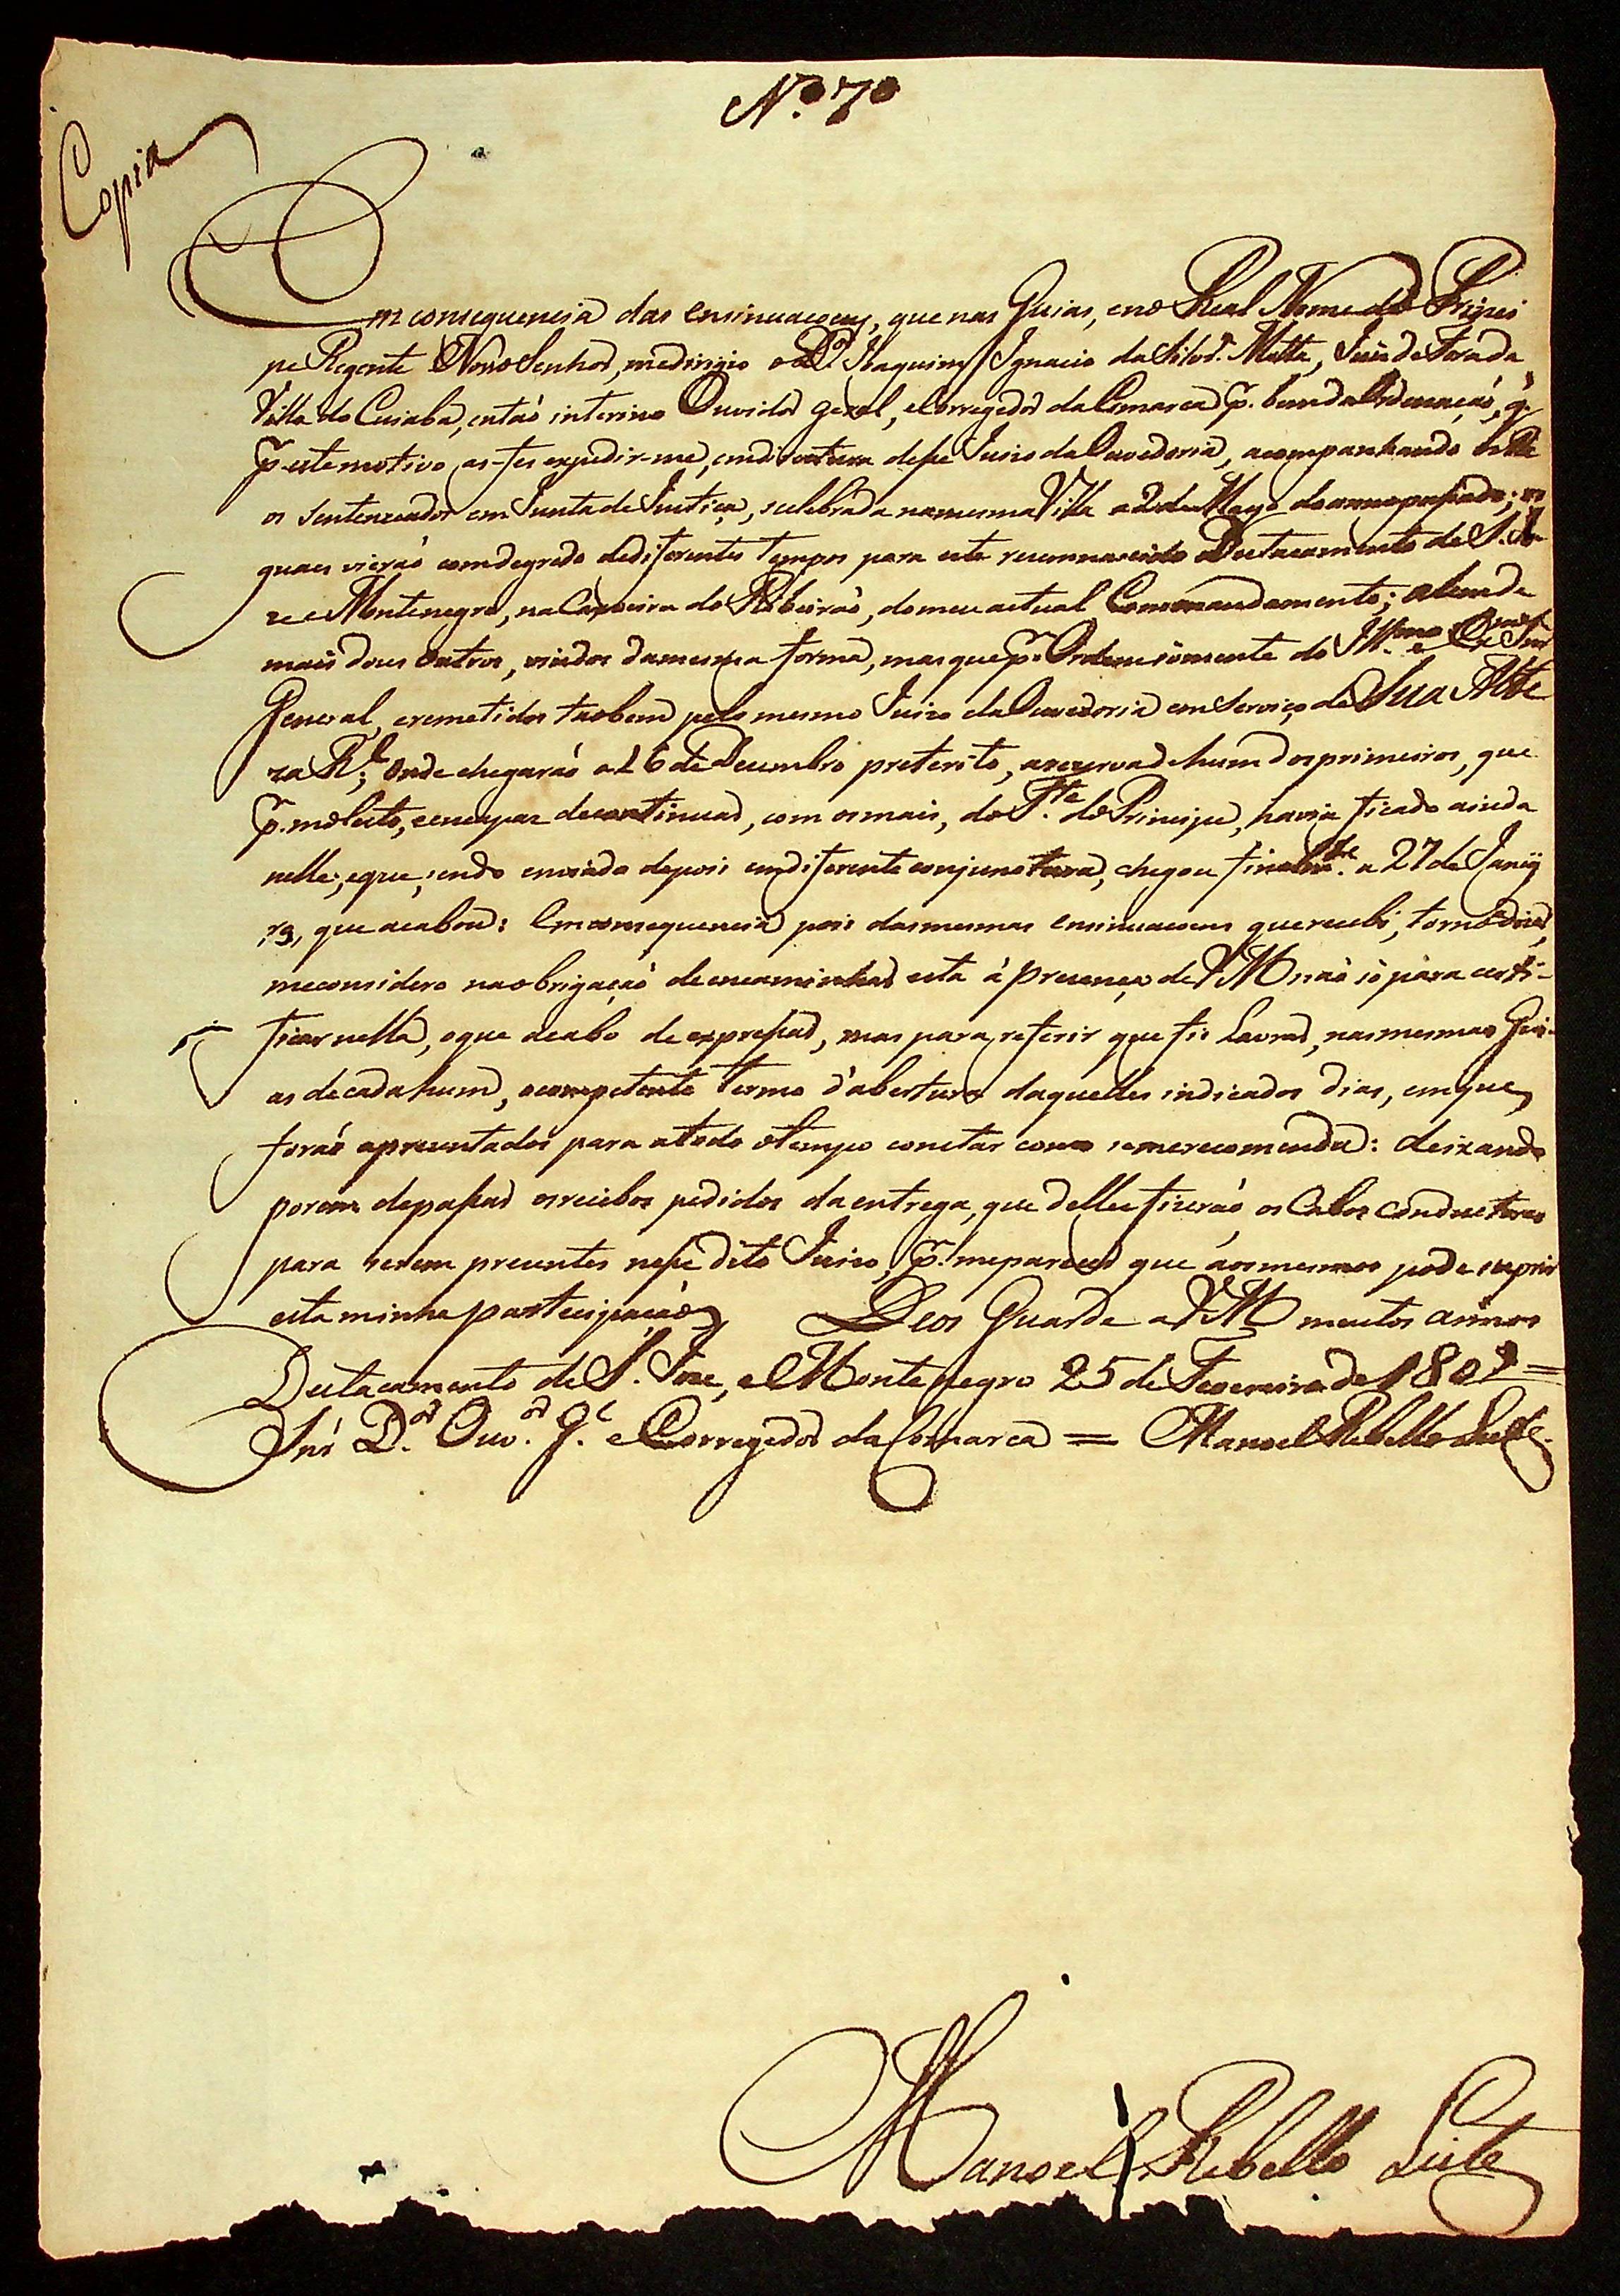 N.º 7º
Copia
Em consequencia das ensinuacoens, que nas Guias, eno Real Nome do Princi
pe Regente Nosso Senhor, medirigio o D.or Joaquim Ignacio da Silvr.ª Motta, Juis de Fora da
Villa do Cuiabá, entaõ interino Ouvidor geral, eCorregedor da Comarca p.r bem da Ordenaçaõ, q.
p.r este motivo as fes expedir-me, emdireitura desse Juizo da Ouvedoria, acompanhando
os sentenceados em Junta de Justiça, scelebrada namesma Villa a 2 de Mayo do anno passado; os
quaes vieraõ comdegredo dediferentes tempos para este recemnascido Destacamento de S. Jo
ze e Montenegro, na Caxoeira do Ribeiraõ, do meu actual Commandamento; alem de
mais dous outros, vindos damesma forma, mas que p.r Ordem sómente do Ill.mo e Ex.mo Snr
General, eremetidos taobem pelo mesmo Juizo da Ouvedoria em Serviço de Sua Alte
za R.l; onde chegaraõ a 16 de Decembro preterito, areserva d'hum dos primeiros, que
p.r molesto, eencapaz decontinuar, com os mais, do F.te do Principe, havia ficado ainda
nelle; eque, sendo enviado depois emdiferente conjunctura, chegou finalm.te a 27 de Janey
ro, que acabou: Em consequencia pois dasmesmas ensinuacoens que recebi, torno adizer,
meconsidero naobrigaçaõ de encaminhar esta á prezença de VM naõ só para certi-
ficar nella, oque acabo de expressar, mas para referir que fis Lavrar, nasmesmas Gui-
as decada hum, ocompetente Termo d'abertura daquelles indicados dias, emque
foraõ aprezentados para atodo otempo constar como semerecomenda: deixando
porem depassar osrecibos pedidos da entrega, que delles fizeraõ os Cabos conductores
para serem prezentes nesse dito Juizo, p.r meparecer que áosmesmos pode suprir
esta minha participaçaõ Deos Guarde a VM muitos annos
Destacamento de S. Joze, e Montenegro 25 de Fevereiro de 1809 =
Snr D.or Ouv.or G.l e Corregedor da Comarca = Manoel Rebello Leite.
Manoel Rebello Leite